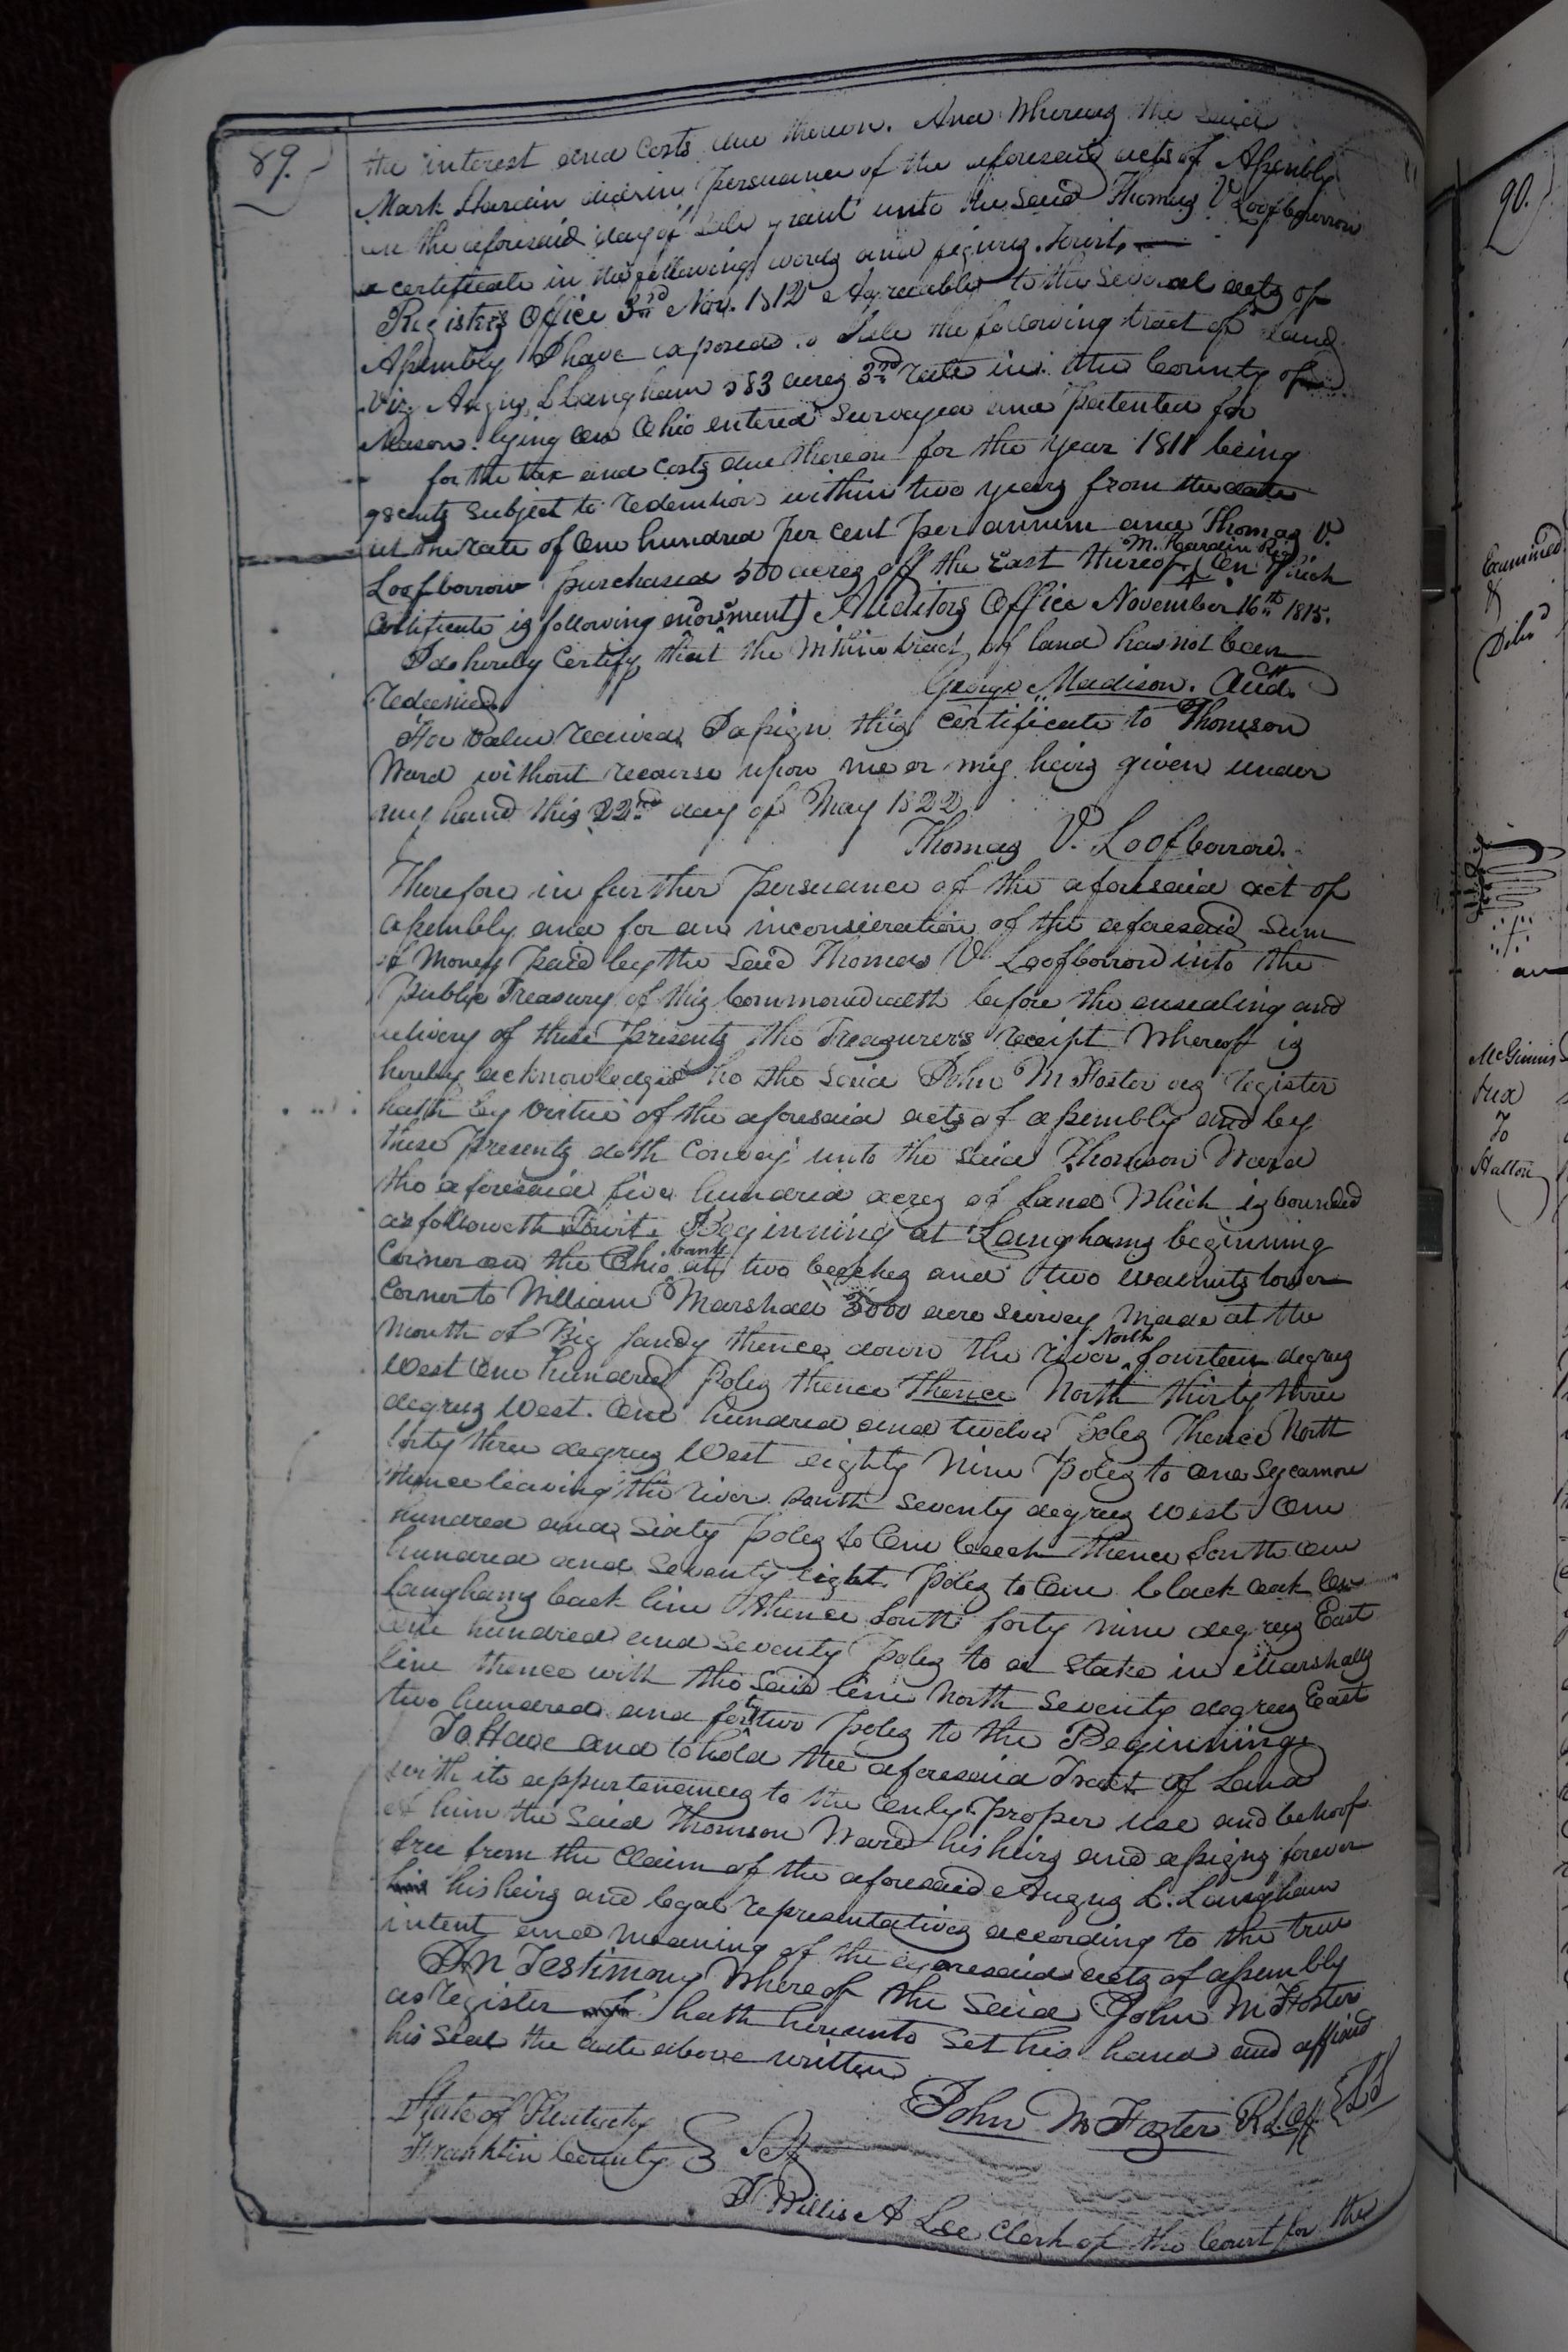 89.
the interest and Costs due thereon. And Whereas the Said
Mark Hardin did in persuance of the aforesaid acts of Assembly
on the aforesaid day of Sale grant unto the Said Thomas V Loofbourrow
a certificate in the following words and figures. Towit,
Registers Office 3rd Nov. 1812 Agreeable to the Several acts of
Assembly I have exposed to Sale the following tract of Land
Viz Angus L Langham 583 acres 3rd rate in the County of
Mason lying On Ohio entered Surveyed and patented for
for the tax and Costs due thereon for the Year 1811 being
cents Subject to redemtion within two years from the date
at the rate of One hundred per cent per annum and Thomas V.
Loofborrow purchased 500 acres off the East thereof M. Hardin Reg. On Which
Certificate is following endorsment) Auditors Office November 16th 1815.
I do hereby Certify that the Within tract of land has not been
redeemed. George Madison. Aud.
For Value received I assign this Certificate to Thomson
Ward without recourse upon me or my heirs given under
my hand this 22nd day of May 1822
Thomas V. Loofborrow.
Therefore in further persuance of the aforesaid act of
assembly and for an inconsieration of the aforesaid Sum
of Money paid by the Said Thomas V Loofborrow into the
Public Treasury of this Commonwealth before the ensealing and
delivery of these presents the Treasurer's receipt Whereof is
hereby acknowledged he the Said John M Foster as register
hath by Virtue of the aforesaid acts of assembly and by
these presents doth Convey unto the Said Thomson Ward
the aforesaid five hundred acres of Land Which is bounded
as followeth Towit. Beginning at Langhams beginning
Corner on the Ohio bank at two beeches and two walnuts lower
Corner to William Marshall 3000 acre Survey Made at the
Mouth of Big Sandy thence down the river North fourteen degrees
West One hundred Poles thence Thence North thirty three
degrees West. One hundred and twelve Poles Thence North
forty three degrees West eighty Nine poles to One Sycamore
thence leaving the river South Seventy degrees West One
hundred and Sixty poles to One beech thence South One
hundred and Seventy eight poles to One black Oak On
Langhams back line thence South forty nine degrees East
One hundred and Seventy poles to a Stake in Marshalls
line thence with the Said line North Seventy degrees East
two hundred and forty two poles to the Beginning
To Have and to hold the aforesaid Tract of Land
with its appurtenances to the Only proper use and behoof
of him the Said Thomson Ward his heirs and assigns forever
free from the Claim of the aforesaid Angus L. Langham
his heirs and legal representatives according to the true
intent and meaning of the aforesaid acts of assembly
In Testimony Whereof the Said John M Foster
as register hath hereunto Set his hand and affixed
his Seal the date above written
John M Foster R L Off {LS
State of Kentucky
Franklin County } Sct
I Willis A Lee Clerk of the Court for the
90.
Examined
&
Delvd
McGinnis
Tux
To
Hatton